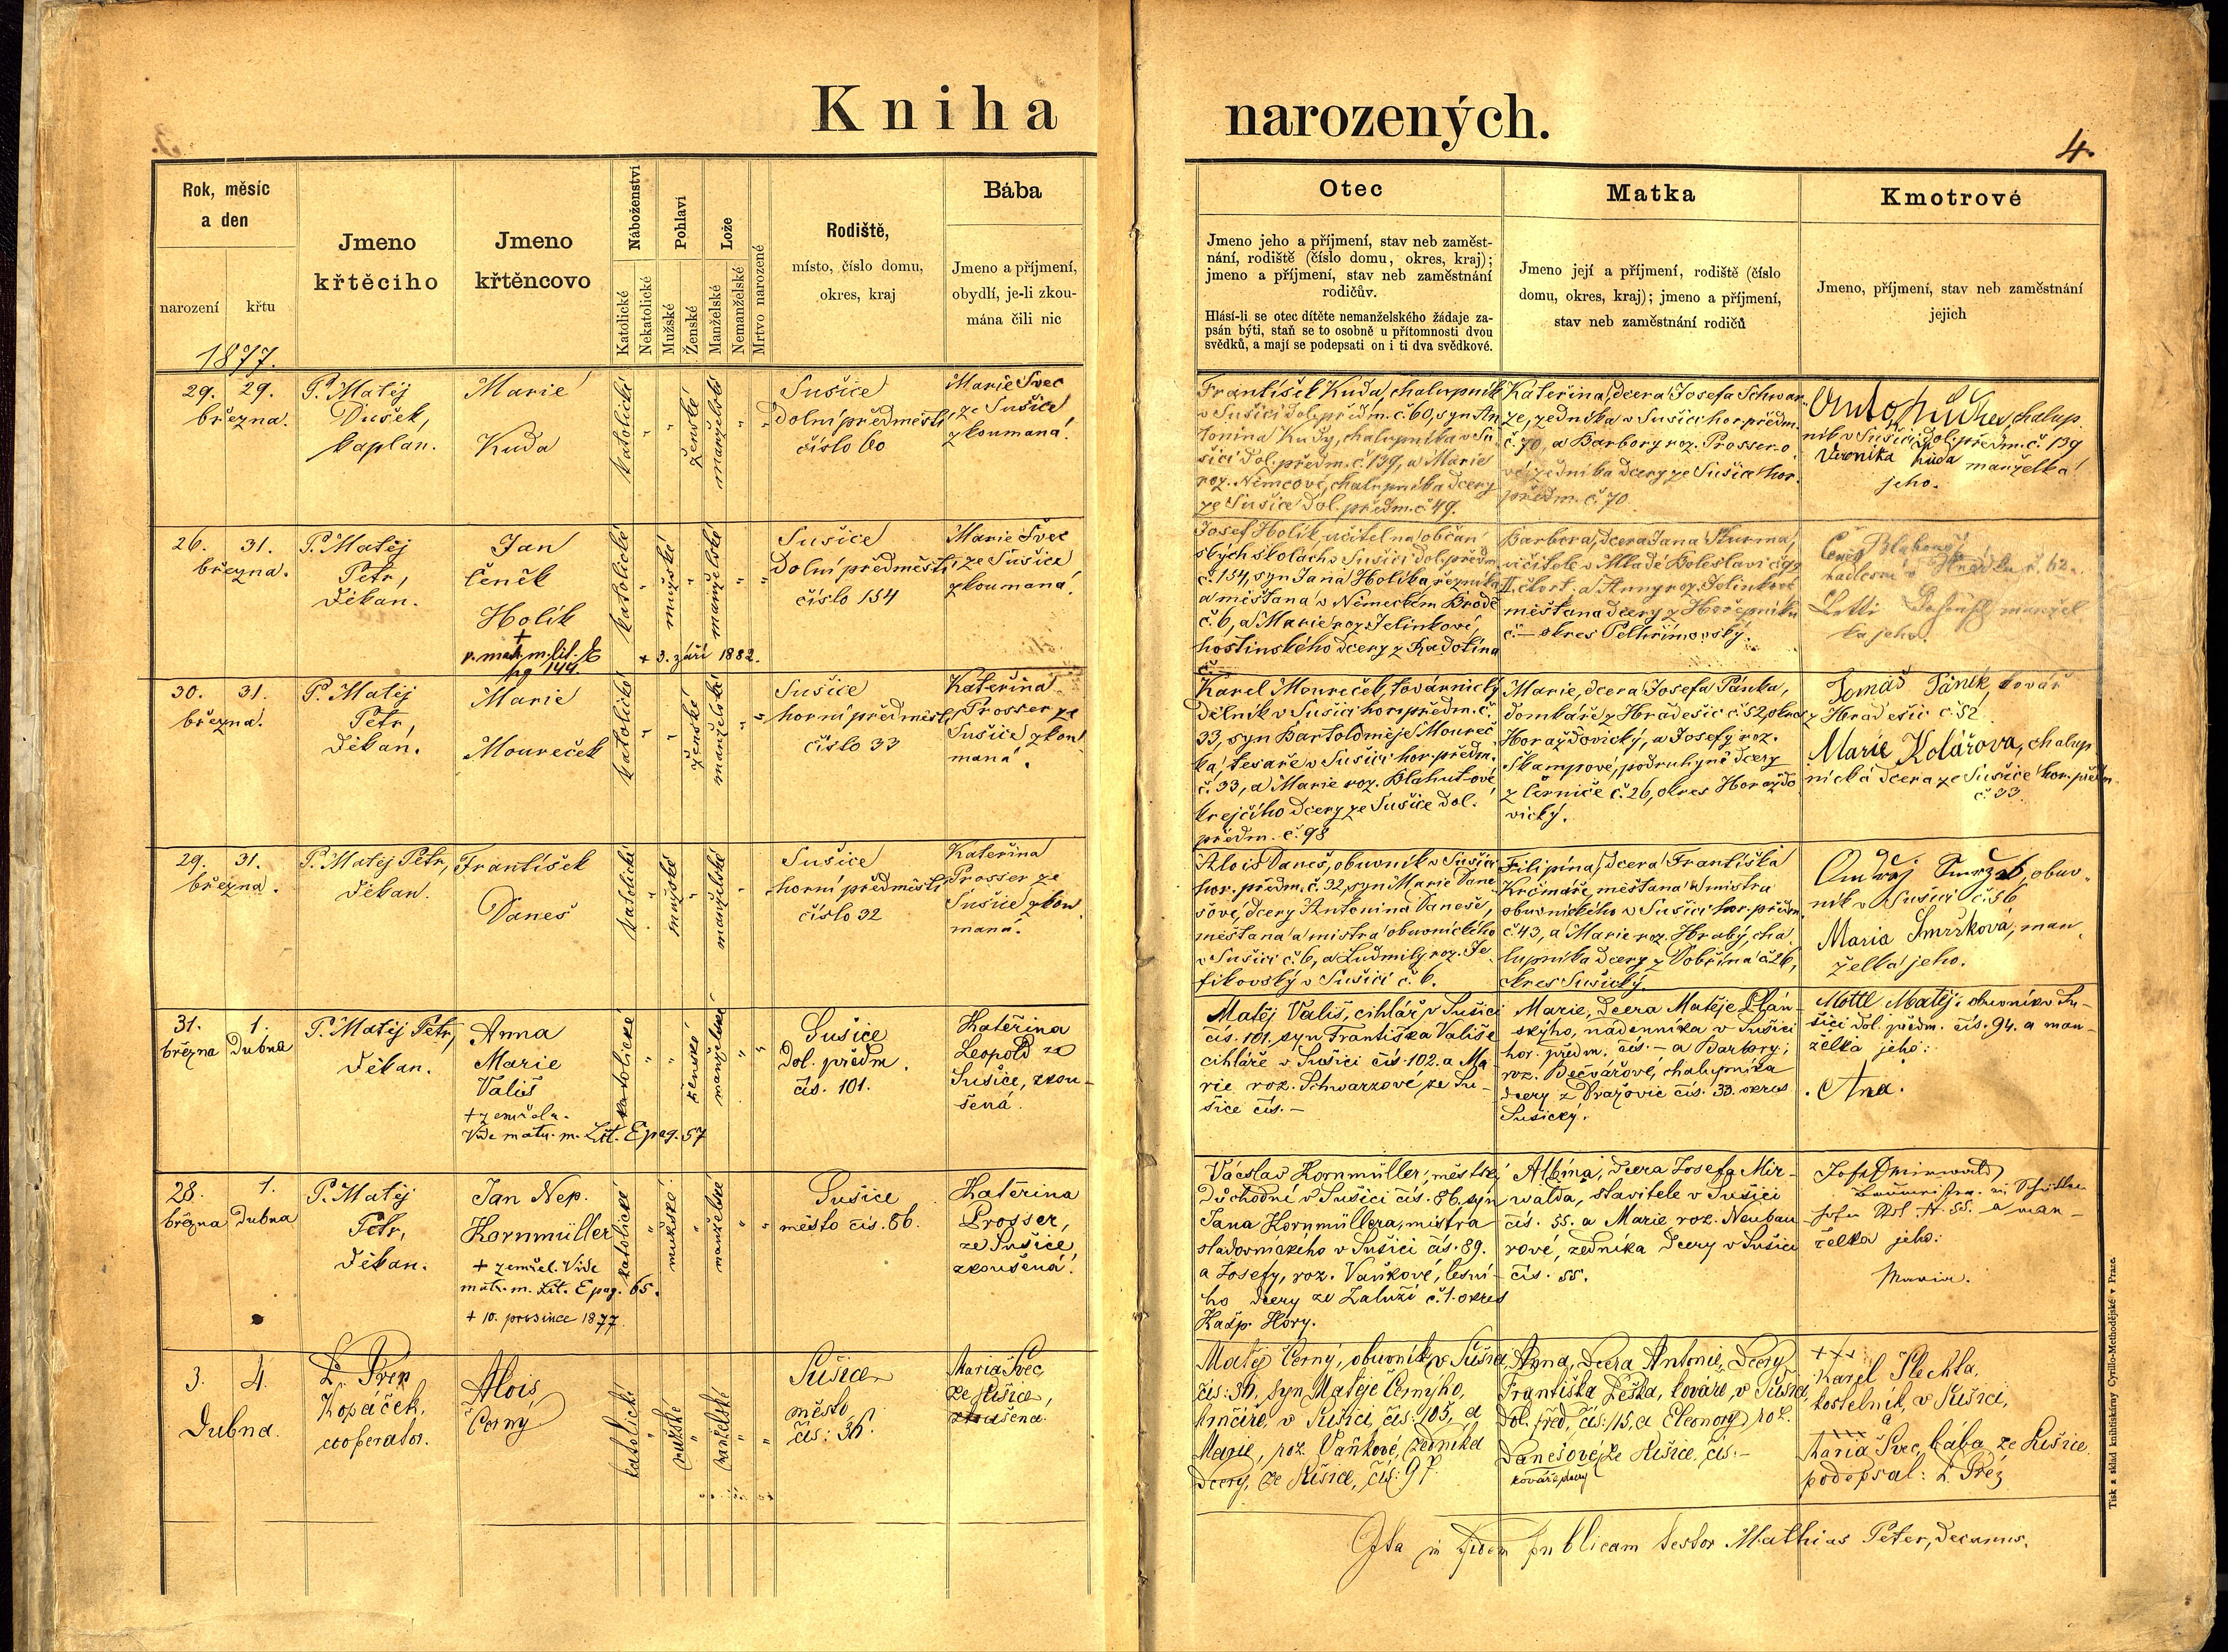 Kniha narozených.
4.
Rok, měsíc
a den
narození
křtu
Jmeno
křtěcího
Jmeno
křtěncovo
Náboženství
Katolické
Nekatolické
Pohlaví
Mužské
Ženské
Lože
Manželské
Nemanželské
Mrtvo narozené
Rodiště,
místo, číslo domu,
okres, kraj
Bába
Jmeno a příjmení,
obydlí, je-li zkou-
mána čili nic
Otec
Jmeno jeho a příjmení, stav neb zaměst-
nání, rodiště (číslo domu, okres, kraj);
jmeno a příjmení, stav neb zaměstnání
rodičův.
Hlásí-li se otec dítěte nemanželského žádaje za-
psán býti, staň se to osobně u přítomnosti dvou
svědků, a mají se podepsati on i ti dva svědkové.
Matka
Jmeno její a příjmení, rodiště (číslo
domu, okres, kraj); jmeno a příjmení,
stav neb zaměstnání rodičů
Kmotrové
Jmeno, příjmení, stav neb zaměstnání
jejich
1877.
29. 29.
března.
P. Matěj
Dušek,
kaplan.
Marie
Kuda
katolické
ženské
manželské
Sušice
Dolní předměstí
číslo 60
Marie Švec
ze Sušice
zkoumaná.
František Kuda, chalupník
v Sušici dol. předm. č. 60, syn An
tonína Kudy, chalupníka v Su
šici dol. předm. č. 139, a Marie
roz. Němcové, chalupníka dcery
ze Sušice dol. předm. č. 49.
Kateřina, dcera Josefa Schwar
ze, zedníka v Sušici hor. předm.
č. 70, a Barbory roz. Prossero
vé, zedníka dcery ze Sušice hor.
předm. č. 70
chalup
ník v Sušici dol. předm. č. 139
Veronika Kuda manželka
jeho.
26. 31.
března.
P. Matěj
Petr,
Děkan.
Jan
Čeněk
Holík
+
v. matr. m. lit. E
pg. 144.
+ 3. září 1882.
katolické
mužské
manželské
Sušice
Dolní předměstí
číslo 154
Marie Švec
ze Sušice
zkoumaná.
Josef Holík, učitel na občan
ských školách v Sušici dol. předm.
č. 154, syn Jana Holíka řezníka
a měšťana v Německém Brodě
č. 6, a Marie roz. Jelínkové,
hostinského dcery z Radotína
č.
Barbora, dcera Jana Šturma,
učitele v Mladé Boleslavi
II. čtvrt, a Anny roz. Jelínkové
měšťana dcery z Hořepníku
č. — okres Pelhřimovský.
Čeněk
manžel
ka jeho.
30. 31.
března.
P. Matěj
Petr,
Děkan.
Marie
Moureček
katolické
ženské
manželské
Sušice
horní předměstí
číslo 33
Kateřina
Prosser ze
Sušice zkou
maná.
Karel Moureček, továrnický
dělník v Sušici hor. předm. č.
33, syn Bartoloměje Moureč
ka, tesaře v Sušici hor. předm.
č. 33, a Marie roz. Blahutové
krejčího dcery ze Sušice dol.
předm. č. 98
Marie, dcera Josefa Pánka,
domkáře z Hradešic č. 52 okres
Horažďovický, a Josefy roz.
Škampové, podruhyně dcery
z Černiče č. 26, okres Horažďo
vický.
Tomáš Pánek, kovář
z Hradešic č. 52
Marie Kolářova, chalup
nická dcera ze Sušice hor. předm.
č. 33.
29. 31.
března.
P. Matěj Petr,
Děkan.
František
Daneš
katolické
mužské
manželské
Sušice
horní předměstí
číslo 32
Kateřina
Prosser ze
Sušice zkou
maná.
Alois Daneš, obuvník v Sušici
hor. předm. č. 32, syn Marie Dane
šové, dcery Antonína Daneše,
měšťana a mistra obuvnického
v Sušici č. 6, a Ludmily roz. Je
v Sušici č. 6.
Filipína, dcera Františka
Krčmáře, měšťana a mistra
obuvnického v Sušici hor. předm.
č. 43, a Marie roz. Hrabý, cha
lupníka dcery z Dobršína č. 26,
okres Sušický.
Ondřej Smržek, obuv
ník v Sušici č. 36
Maria Smržková, man
želka jeho.
31. 1.
března Dubna
P. Matěj Petr,
Děkan.
Anna
Marie
Vališ
+ zemřela.
Vide matr. m. Lit. E pag. 57
katolické
ženské
manželské
Sušice
Dol. předm.
čís. 101.
Kateřina
Leopold ze
Sušice, zkou-
šená.
Matěj Vališ, cihlář v Sušici
čís. 101, syn Františka Vališe
cihláře v Sušici čís. 102. a Ma
rie roz. Schwarzové, ze Su-
šice čís. —
Marie, dcera Matěje Plán-
ského, nádenníka v Sušici
hor. předm. čís. — a Barbory,
roz. Bečvářové, chalupníka
dcery z Dražovic čís. 33. okres
Sušický.
Mottl Matěj, obuvník v Su-
šici dol. předm. čís. 94. a man-
želka jeho:
Ana.
28. 1.
března Dubna
P. Matěj
Petr,
Děkan.
Jan Nep.
Kornmüller
+ zemřel. Vide
matr. m. Lit. E pag. 65.
+ 10. prosince 1877.
katolické
mužské
manželské
Sušice
město čís. 86.
Kateřina
Prosser,
ze Sušice
zkoušená.
Václav Kornmüller, městský
důchodní v Sušici čís. 86. syn
Jana Kornmüllera, mistra
sladovnického v Sušici čís. 89.
a Josefy, roz. Vaňkové, lesní-
ho dcery ze Zaluží č. 1. okres
Kašp. Hory.
Albína, dcera Josefa Mir-
walda, stavitele v Sušici
čís. 55. a Marie roz. Neubau
rové, zedníka dcery v Sušici
čís. 55.
Josef
a man-
želka jeho:
Maria.
3. 4.
Dubna.
Kopáček,
cooperator.
Alois
Černý
katolické
mužské
manželské
Sušice
město
čís: 36.
Maria Švec,
ze Sušice,
zkoušena.
Matěj Černý, obuvník v Sušici,
čís: 36, syn Matěje Černýho,
hrnčíře, v Sušici, čís: 105, a
Marie, roz. Vaňkové, zedníka
dcery, ze Sušice, čís: 97.
Anna, dcera Antonie, dcery
Františka Leška, kováře, v Sušici,
dol. před, čís: 15, a Eleonory roz.
Danešové, ze Sušice, čís. —
kováře dcery
+++
Karel Plechta,
kostelník, v Sušici,
a
xxx
Maria Švec, bába ze Sušice.
podepsal:
in fidem publicam testor Mathias Peter, Decanus.
Tisk a sklad knihtiskárny Cyrillo-Methodějské v Praze.